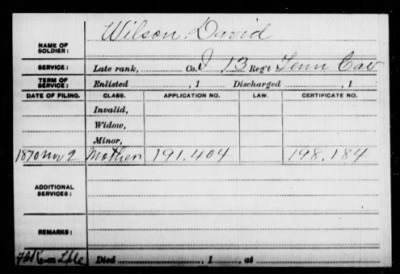 Wilson David
NAME OF
SOLDIER:
SERVICE: Late rank, Co. I 13 Reg't Tenn Cav
TERM OF
SERVICE: Enlisted , 1 Discharged , 1
DATE OF FILING. CLASS. APPLICATION NO. LAW. CERTIFICATE NO.
Invalid,
Widow,
Minor,
1870 9 Mother 191,404 198,184
ADDITIONAL
SERVICES:
REMARKS:
Died , 1 , at